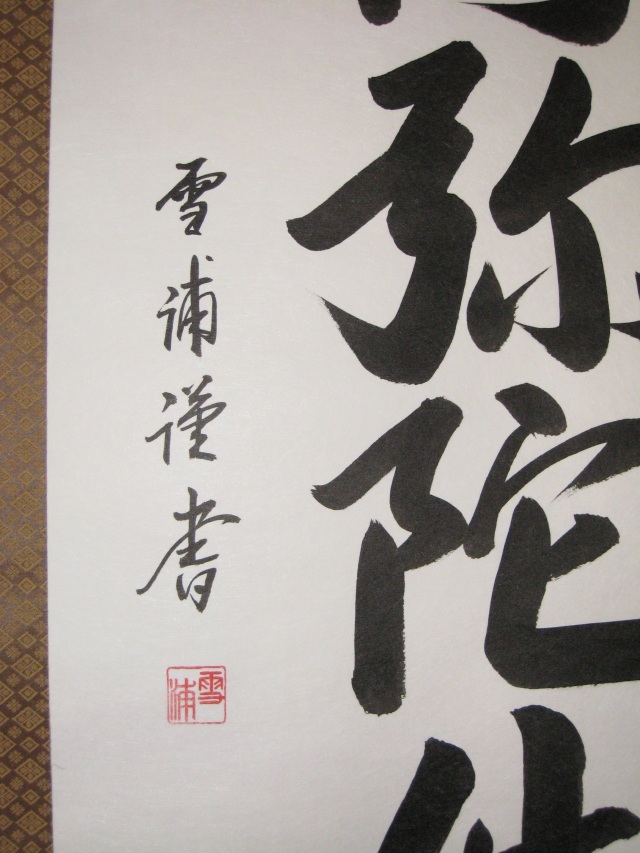 弥陀
雪浦謹書
雪浦